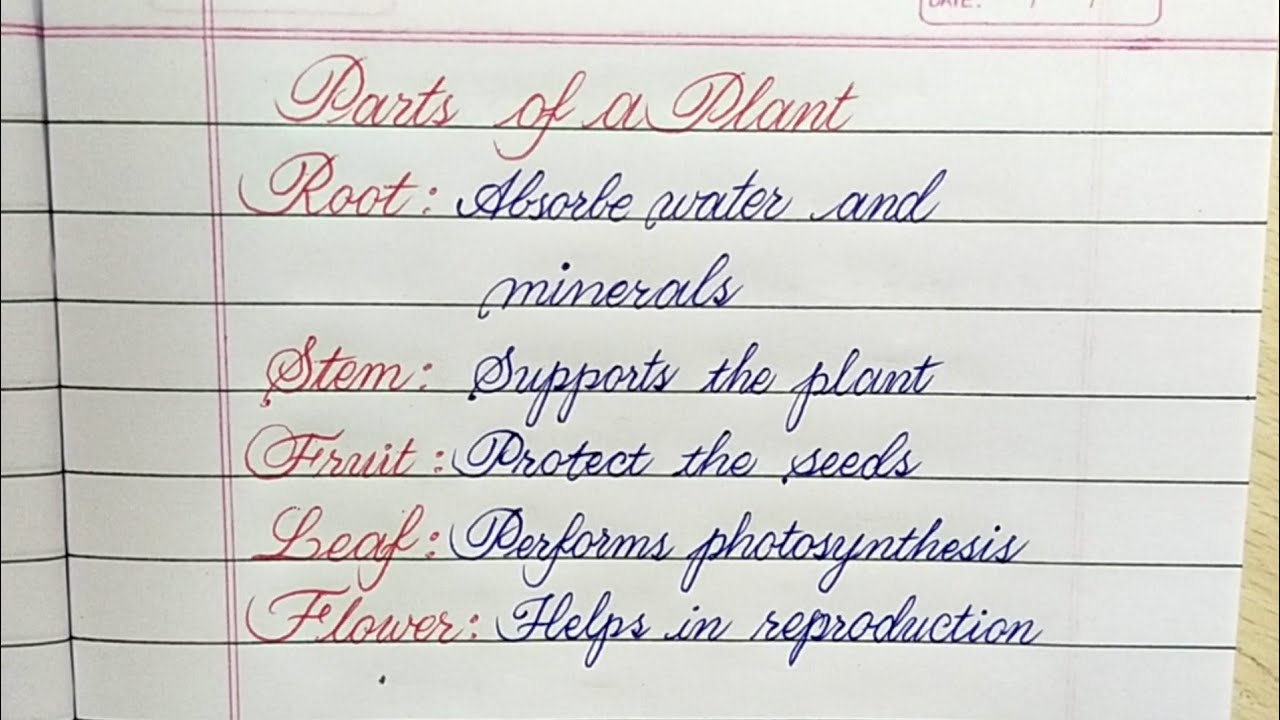 DATE: / /
Parts of a Plant
Root: Absorbe water and
minerals
Stem: Supports the plant
Fruit: Protect the seeds
Leaf: Performs photosynthesis
Flower: Helps in reproduction